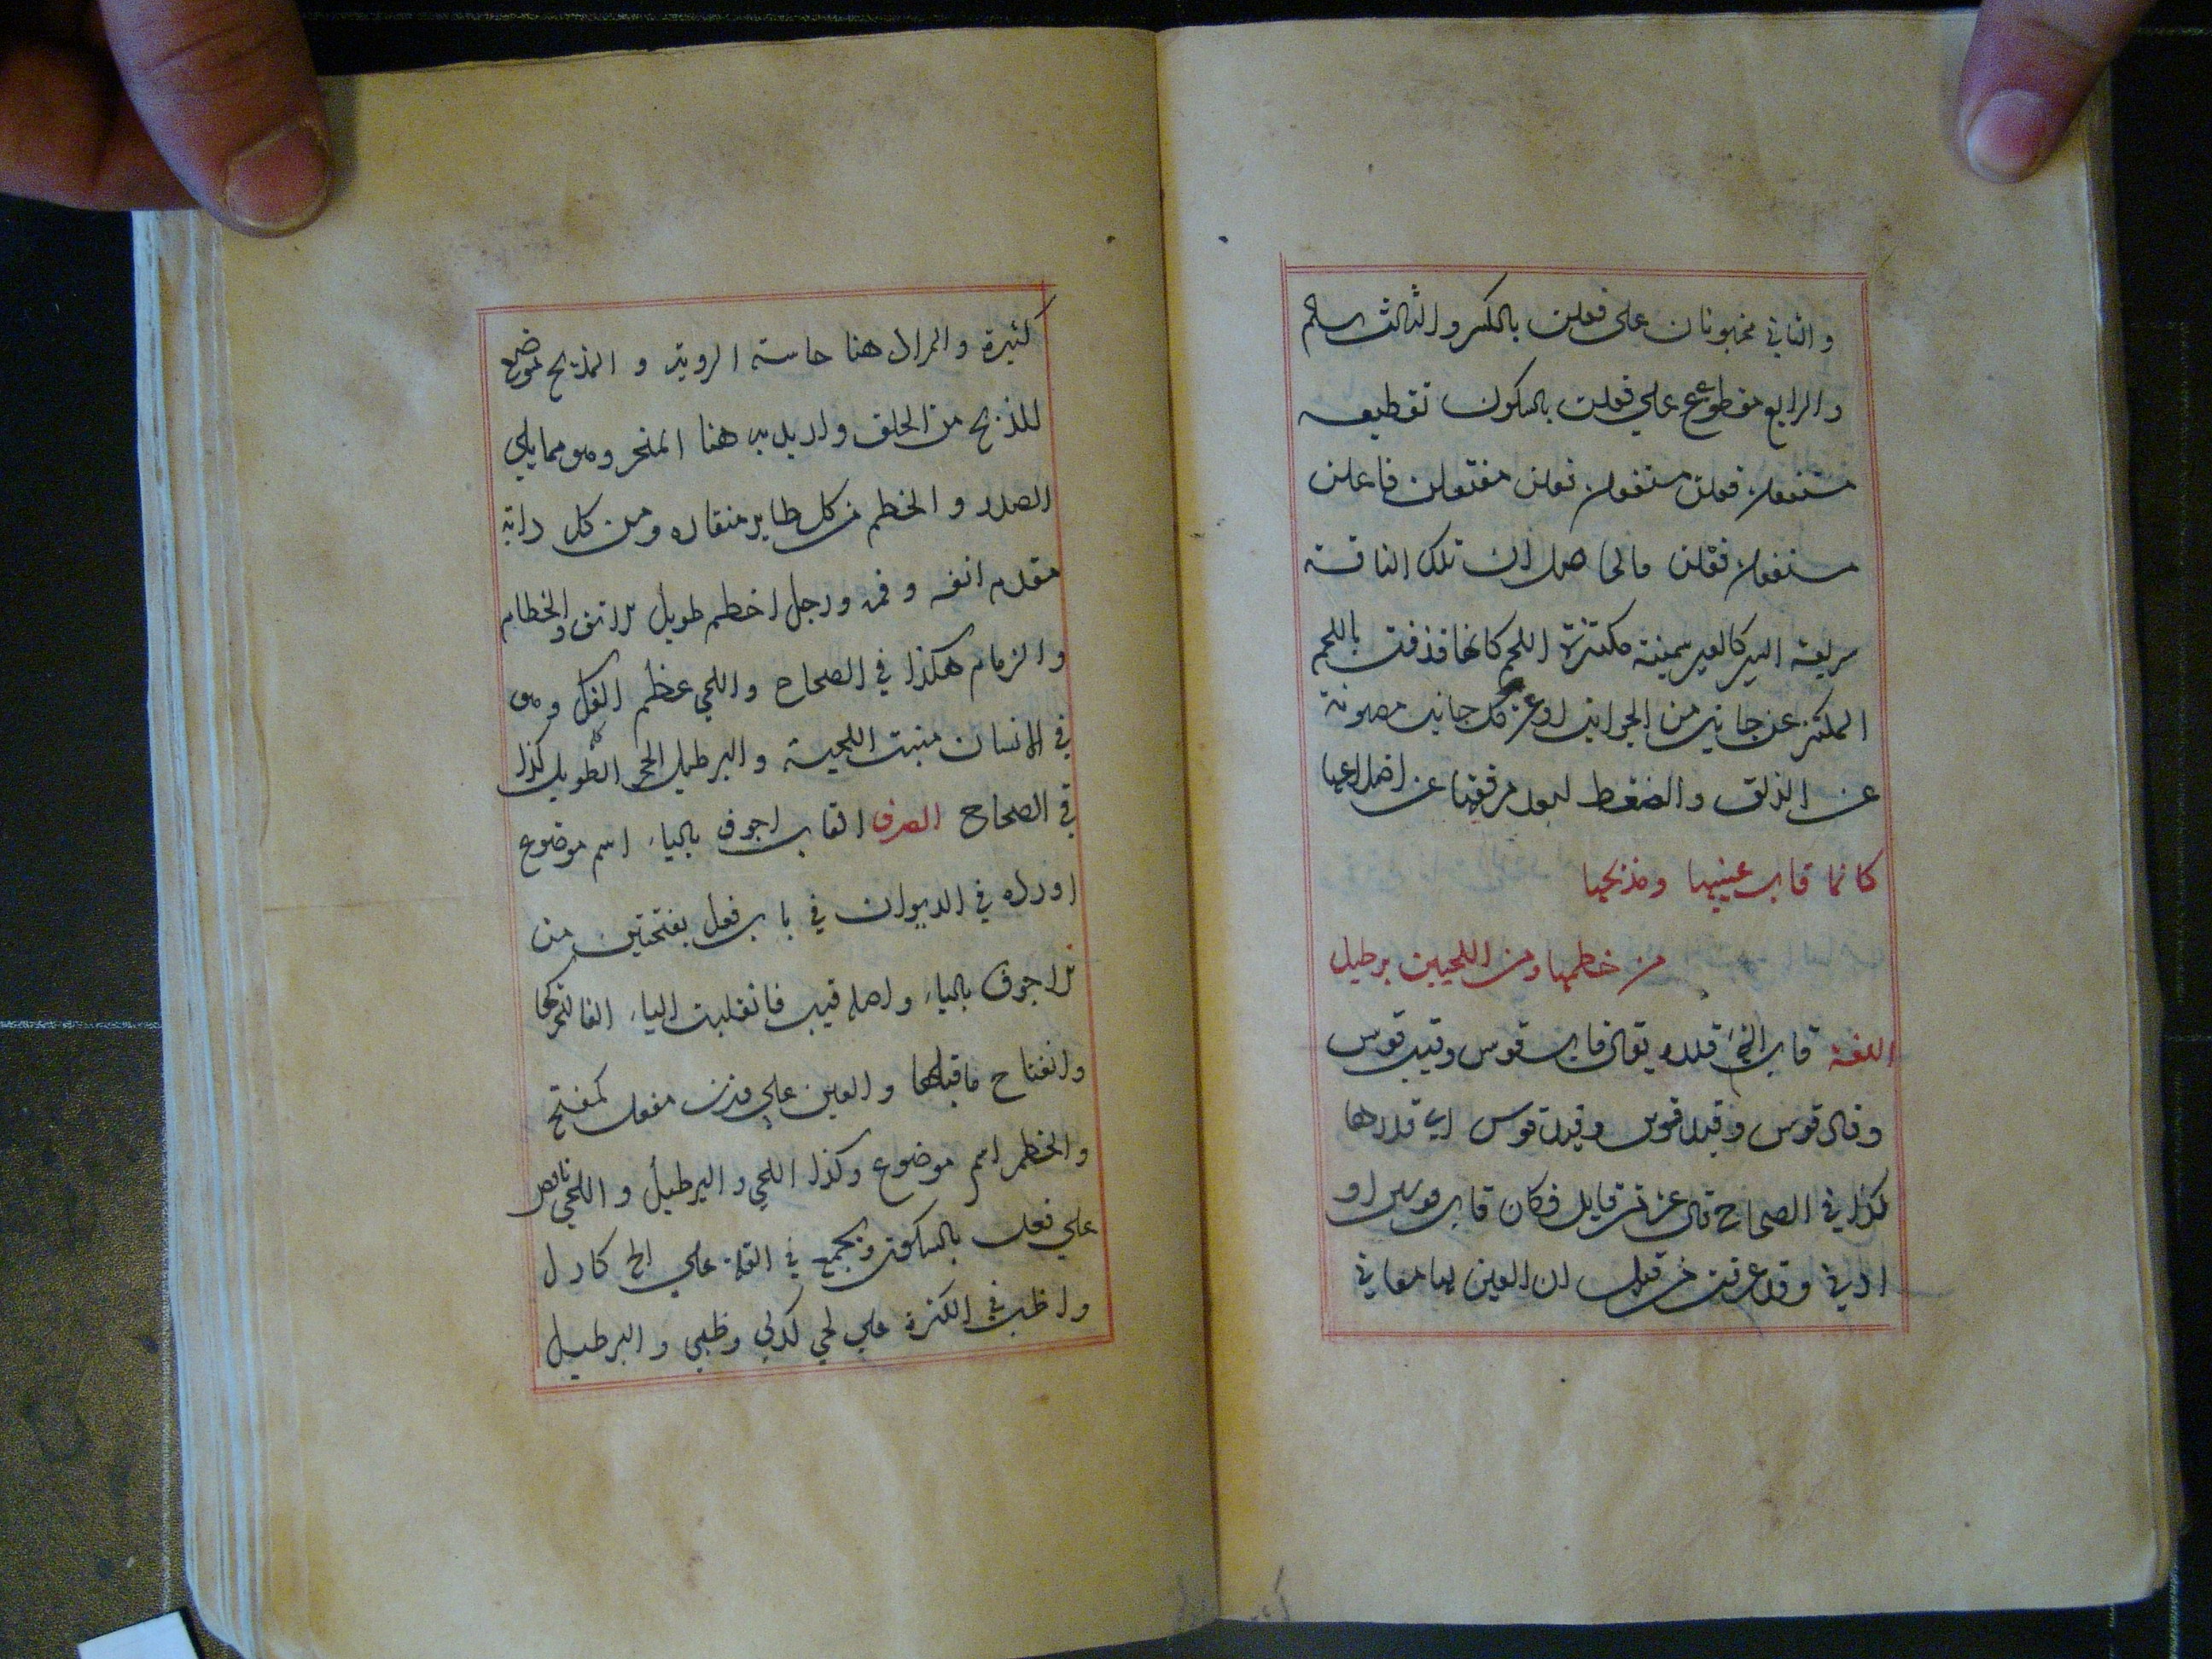 والثاني مخبونان على فعلن بالكسر والثالث سالم
والرابع مقطوع على فعلن بالسكون تقطيعه
مستفعلن فعلن مستفعلن فعلن مفتعلن فاعلن
مستفعلن فعلن والحاصل ان تلك الناقة
سريعة السير كالعير سمينة مكتنزة اللحم كانها قذفت باللحم
المكتنز عن جانب من الجوانب او عن كل جانب مصونة
عن الزلق والضغط لبعد مرفقها عن
كانما قاب عينيها ومذبحها
من خطمها ومن اللحيين برطيل
اللغة قاب الشئ قدره يقال قاب قوس وقيب قوس
وقاد قوس وقيد قوس اي قدرها
كذا في الصحاح قال عز من قايل فكان قاب قوسين او
ادنى وقد عرفت من قبل ان العين لها معاني
كثيرة والمراد هنا حاسة الروية و المذبح موضع
للذبح من الحلق واريد به هنا المنحر وهو مما يلي
الصدر و الخطم من كل طاير منقاره ومن كل دابة
مقدم انفه و فمه ورجل اخطم طويل الانف والخطام
والزمام هكذا في الصحاح واللحي عظم الفك وهو
في الانسان منبت اللحية والبرطيل الحجر الطويل كذا
في الصحاح الصرف القاب اجوف بالياء اسم موضوع
اورده في الديوان في باب فعل بفتحتين من
الاجوف بالياء واصله قيب فانقلبت الياء الفا لتحركها
وانفتاح ما قبلها والعين على وزن مفعل كمفتح
والخطم اسم موضوع وكذا اللحي والبرطيل و اللحي ناقص
على فعل بالسكون ويجمع في القلة على الح كادل
واظب في الكثرة على لحي كدلي وظبي والبرطيل